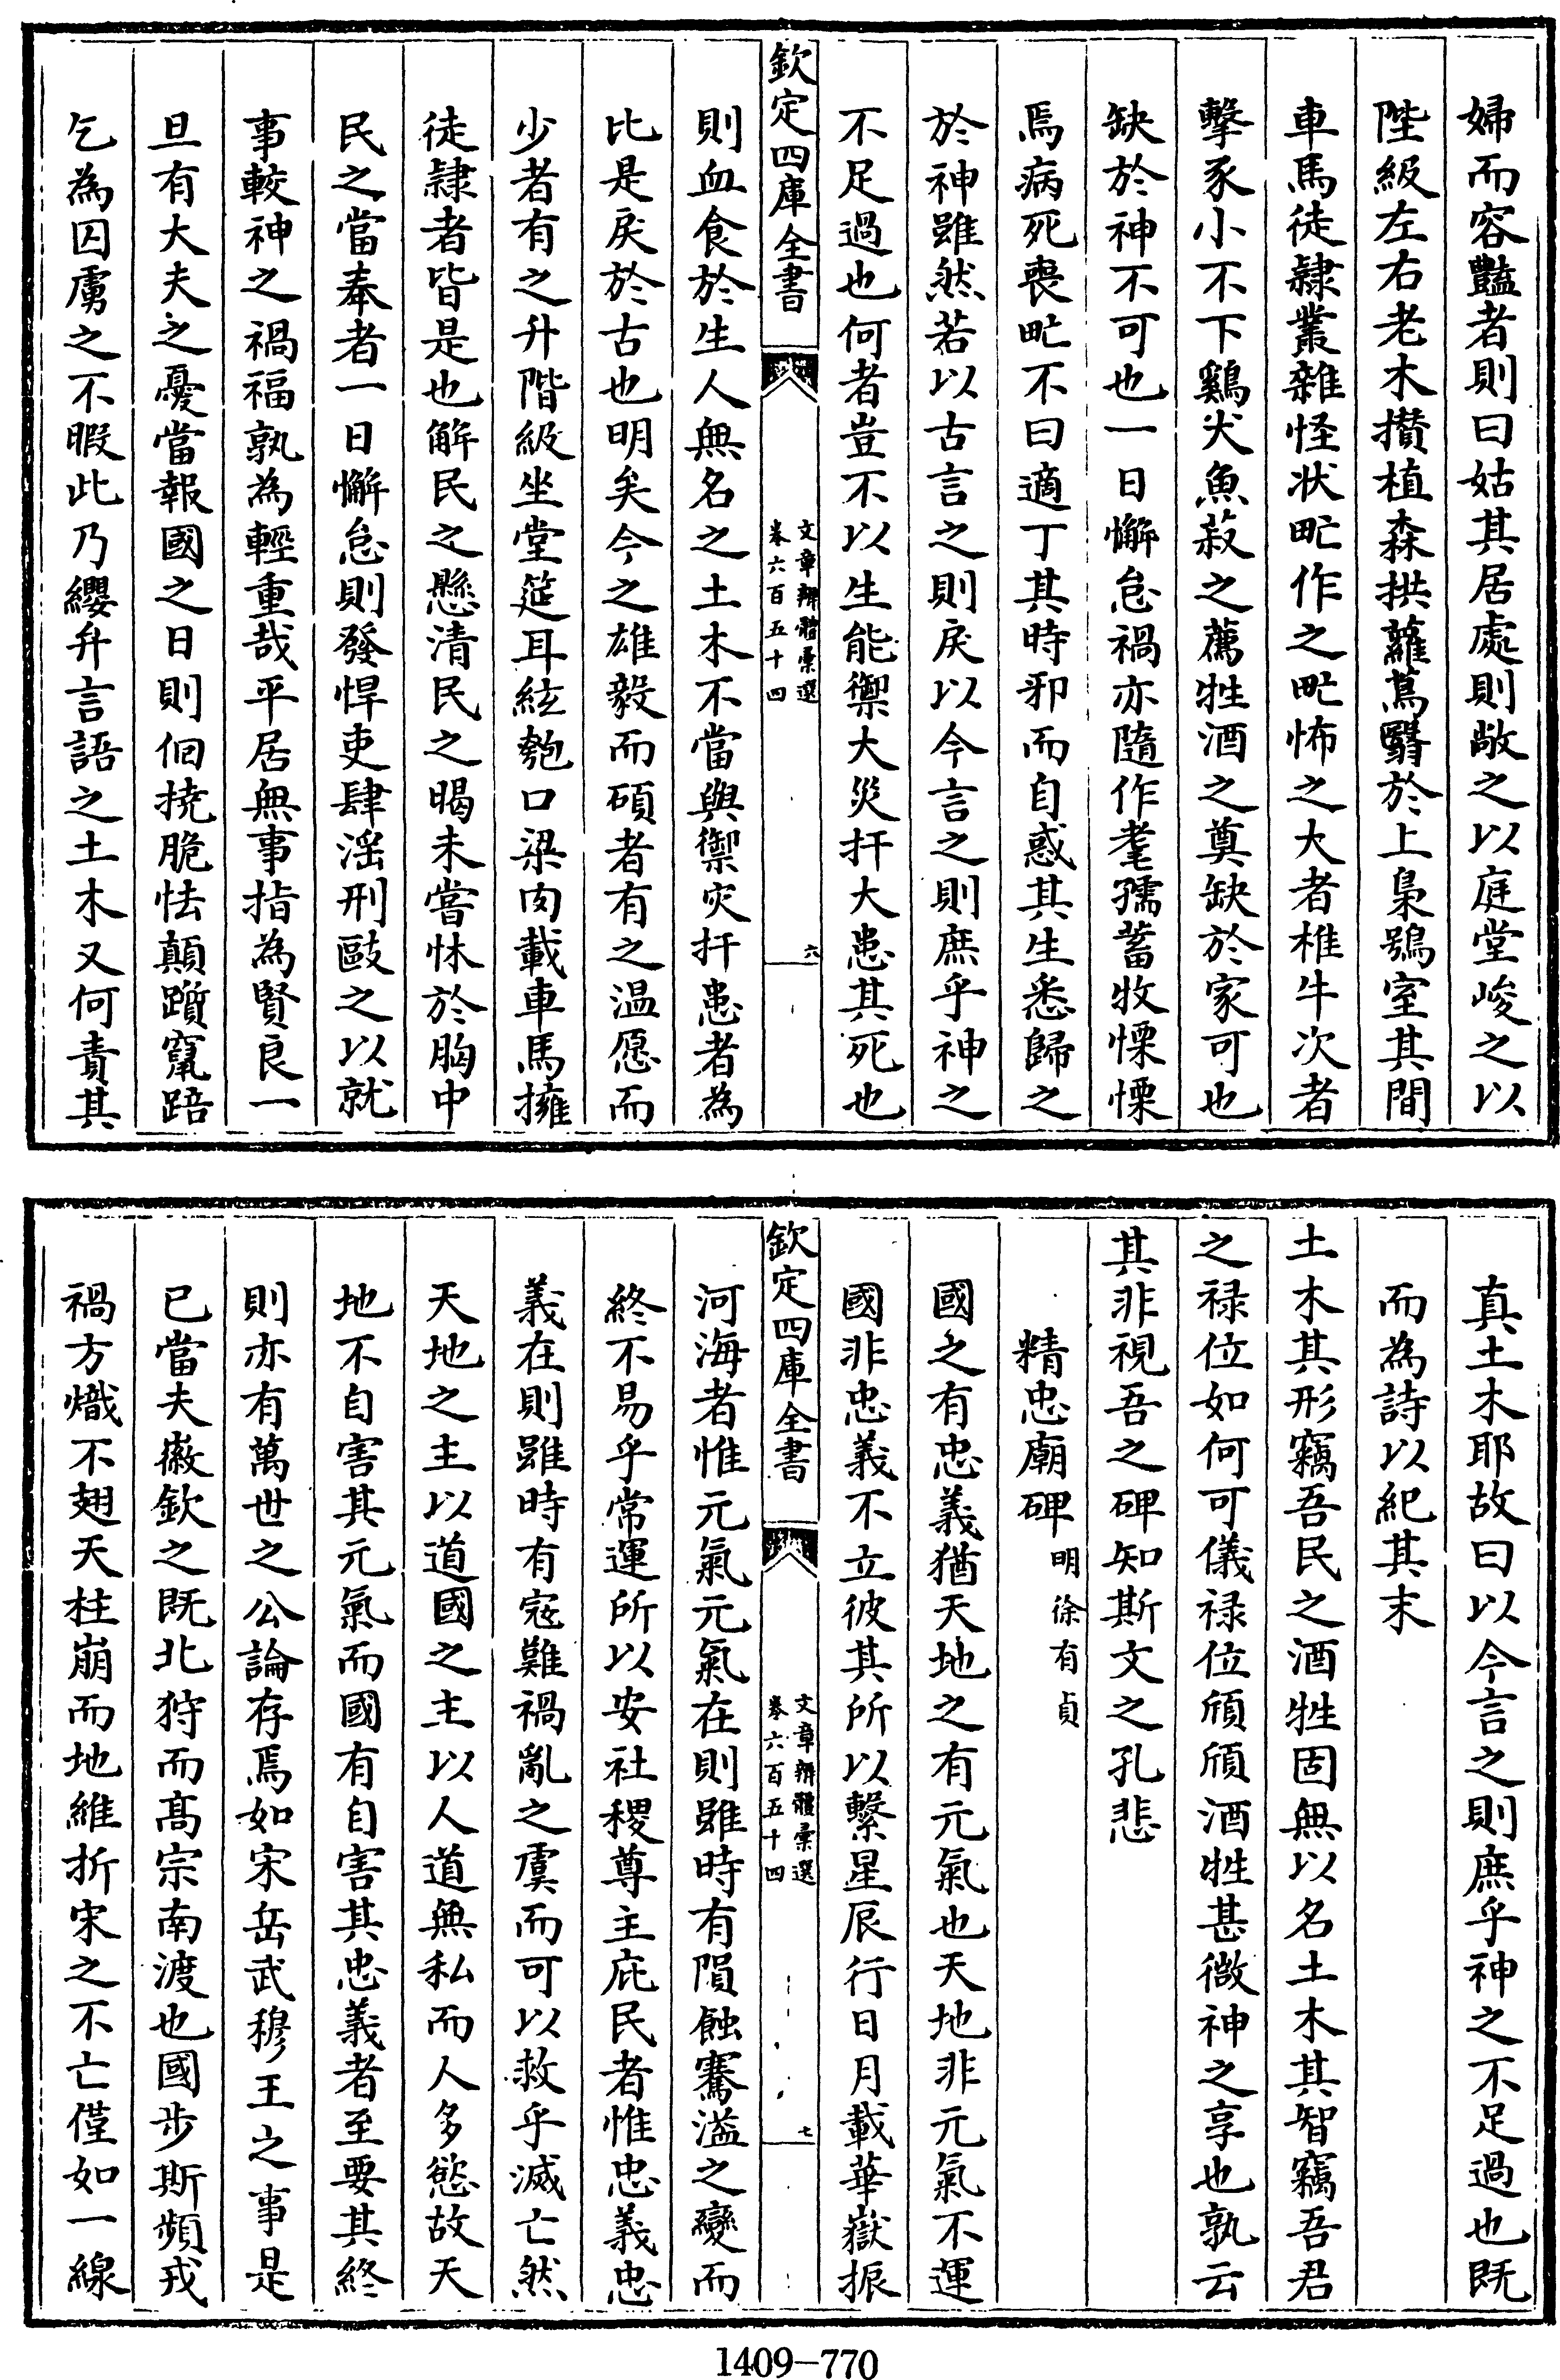 婦而容豔者則曰姑其居處則敞之以庭堂峻之以
陛級左右老木攢植森拱蘿蔦翳於上梟鴞室其間
車馬徒隸叢雜怪狀甿作之甿怖之大者椎牛次者
擊豕小不下鷄犬魚菽之薦牲酒之奠缺於家可也
缺於神不可也一日懈怠禍亦隨作耄孺蓄牧慄慄
焉病死喪甿不曰適丁其時邪而自惑其生悉歸之
於神雖然若以古言之則戾以今言之則庶乎神之
不足過也何者豈不以生能禦大災扞大患其死也
欽定四庫全書
文章辨體彙選
卷六百五十四
六
則血食於生人無名之土木不當與禦灾扞患者為
比是戾於古也明矣今之雄毅而碩者有之温愿而
少者有之升階級坐堂筵耳絃匏口梁肉載車馬擁
徒隸者皆是也解民之懸清民之暍未嘗怵於胸中
民之當奉者一日懈怠則發悍吏肆淫刑敺之以就
事較神之禍福孰為輕重哉平居無事指為賢良一
旦有大夫之憂當報國之日則佪撓脆怯顛躓竄踣
乞為囚虜之不暇此乃纓弁言語之土木又何責其
真土木耶故曰以今言之則庶乎神之不足過也既
而為詩以紀其末
土木其形竊吾民之酒牲固無以名土木其智竊吾君
之禄位如何可儀禄位頎頎酒牲甚微神之享也孰云
其非視吾之碑知斯文之孔悲
精忠廟碑 明徐有貞
國之有忠義猶天地之有元氣也天地非元氣不運
國非忠義不立彼其所以繫星辰行日月載華嶽振
欽定四庫全書
文章辨體彙選
卷六百五十四
七
河海者惟元氣元氣在則雖時有隕蝕騫溢之變而
終不易乎常運所以安社稷尊主庇民者惟忠義忠
義在則雖時有宼難禍亂之虞而可以救乎滅亡然
天地之主以道國之主以人道無私而人多慾故天
地不自害其元氣而國有自害其忠義者至要其終
則亦有萬世之公論存焉如宋岳武穆王之事是
已當夫徽欽之既北狩而髙宗南渡也國步斯頻戎
禍方熾不翅天柱崩而地維折宋之不亡僅如一線
1409-770